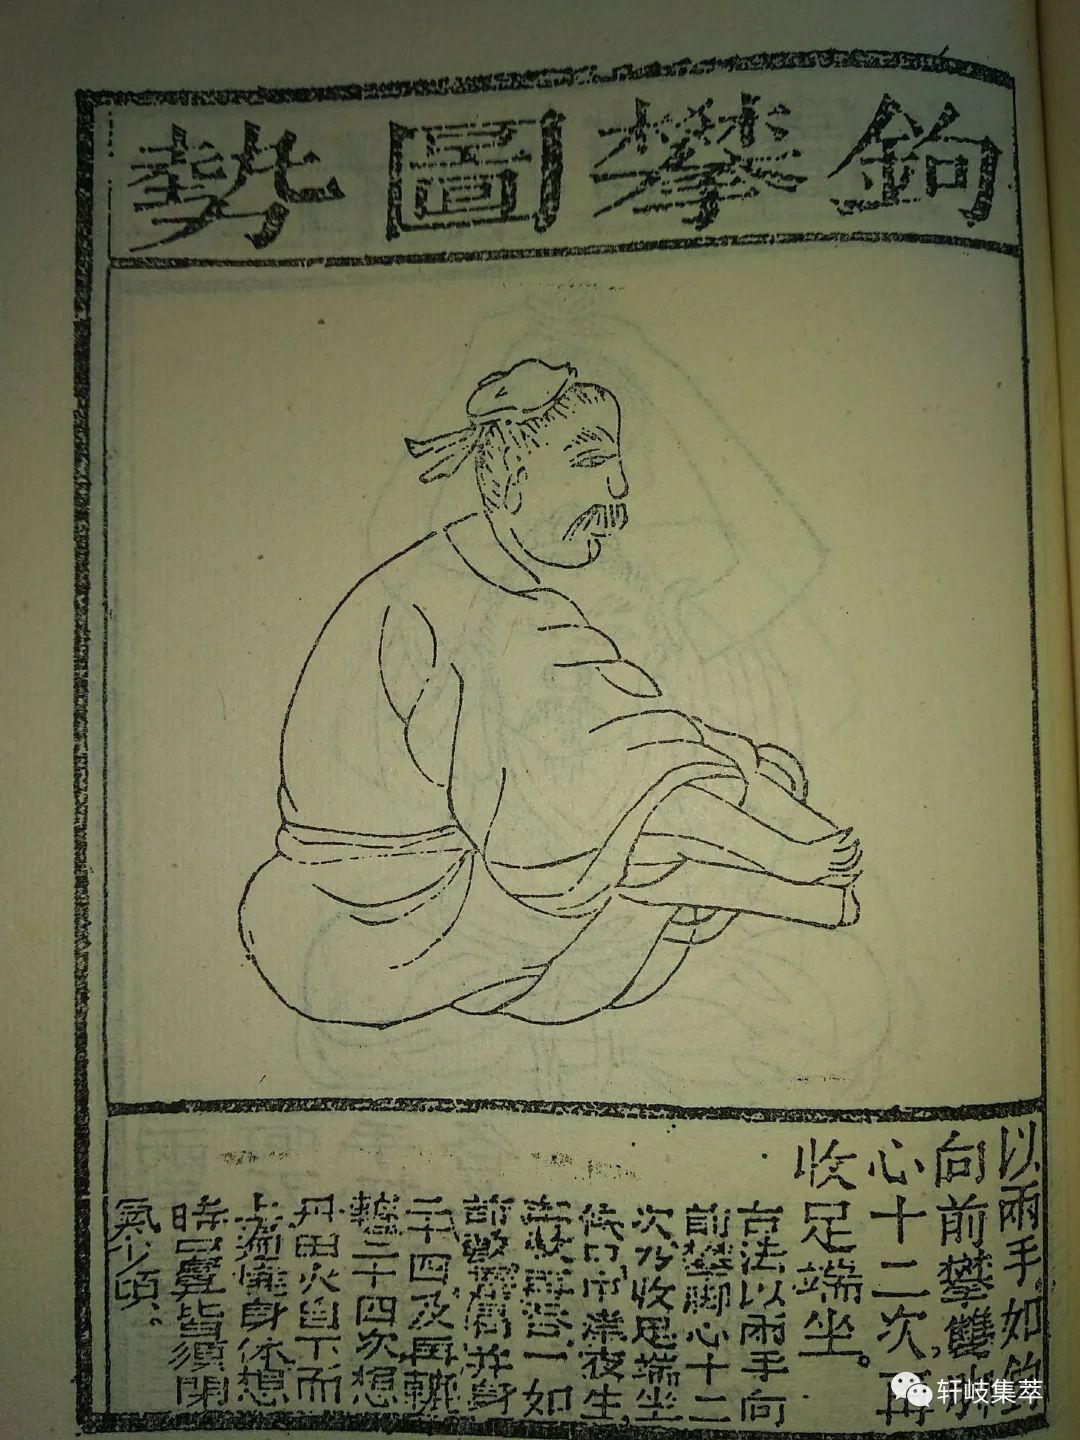 鉤攀圖勢
以兩手如鉤
向前攀雙脚
心十二次,再
收足端坐。
右法以兩手向
前攀脚心十二
次乃收足端坐
候口中津液生,
再漱再吞,一如
節數擺肩并身
二十四及再轉
轆二十四次想
丹田火自下而
上遍燒身体想
時口鼻皆須閉
氣少頃。
轩岐集萃